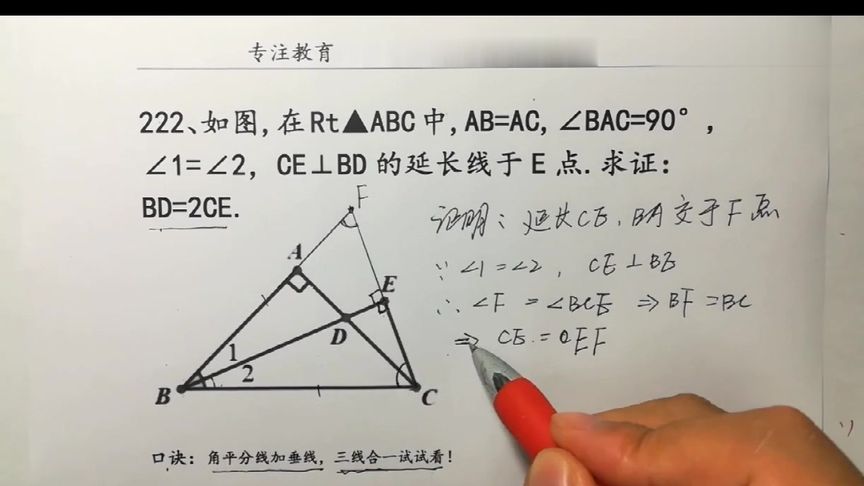 专注教育
222、如图,在Rt▲ABC中,AB=AC,∠BAC=90°,
∠1=∠2, CE⊥BD的延长线于E点.求证:
BD=2CE.
F
A
E
D
1
2
B
C
证明: 延长CE、BA交于F点
∵ ∠1=∠2, CE⊥BE
∴ ∠F = ∠BCE ⇒ BF=BC
⇒ CE = EF
口诀: 角平分线加垂线, 三线合一试试看!